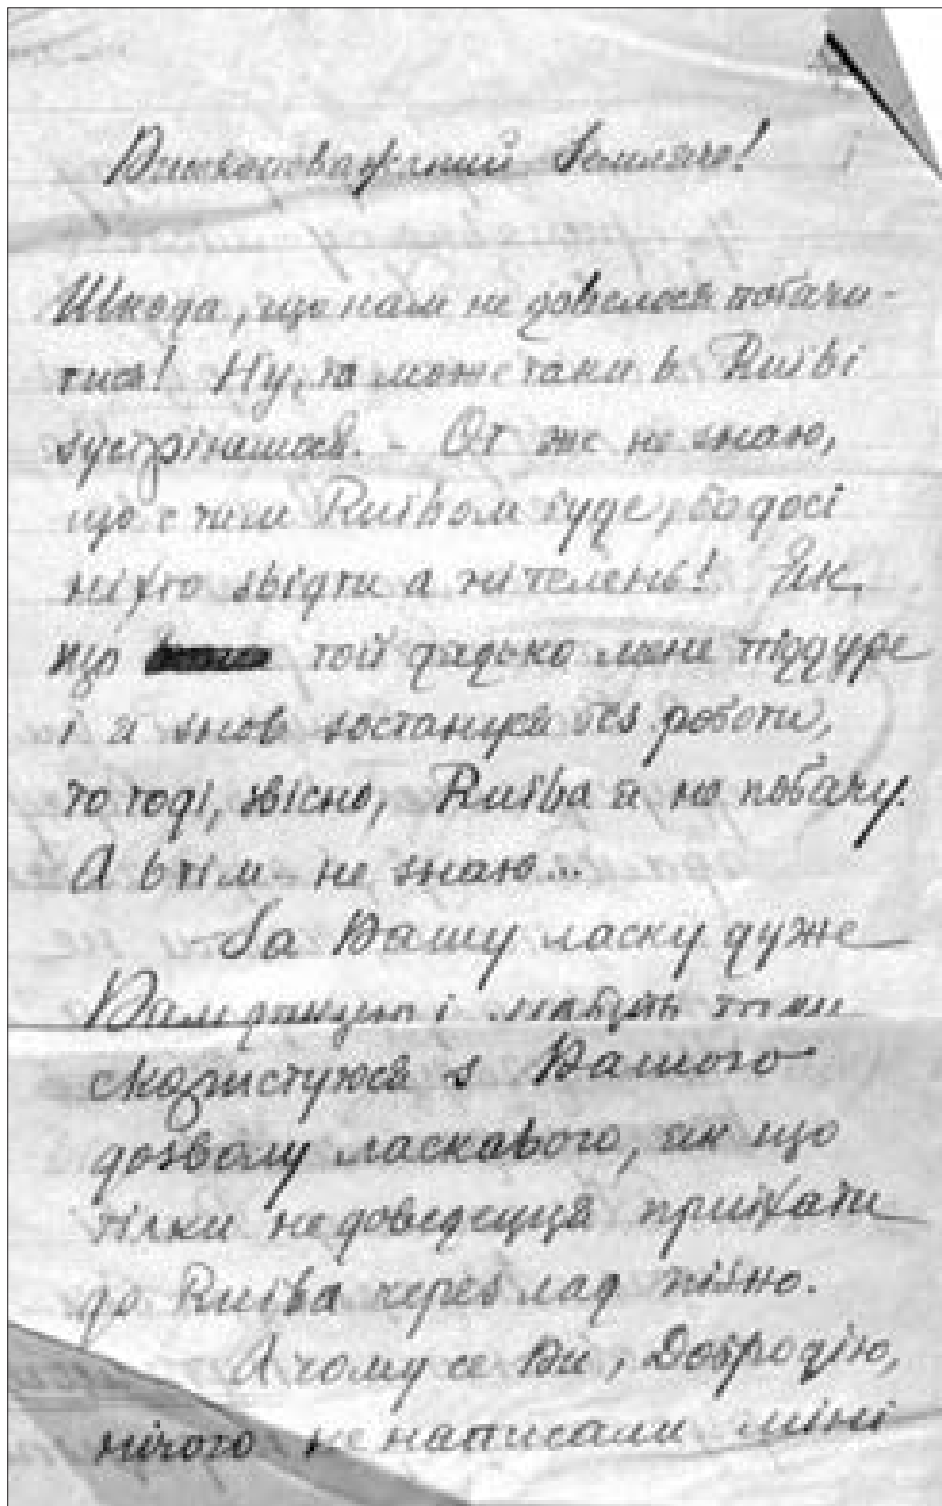 Високоповажний Земляче!
Шкода, що нам не довелося побачи-
тися! Ну, та може таки в Київі
зустрінемось. - От же не знаю,
що с тим Київом буде, бо досі
ніхто звідти а ні телень! Як
що той дядько мене піддуре
і я знов зостануся без роботи,
то тоді, звісно, Київа я не побачу.
А втім - не знаю...
За Вашу ласку дуже
Вам дякую і мабуть таки
скористуюся з Вашого
дозволу ласкавого, як що
тілки не доведецця приїхати
до Київа через лад пізно.
А чому се Ви, Добродію,
нічого не написали міні